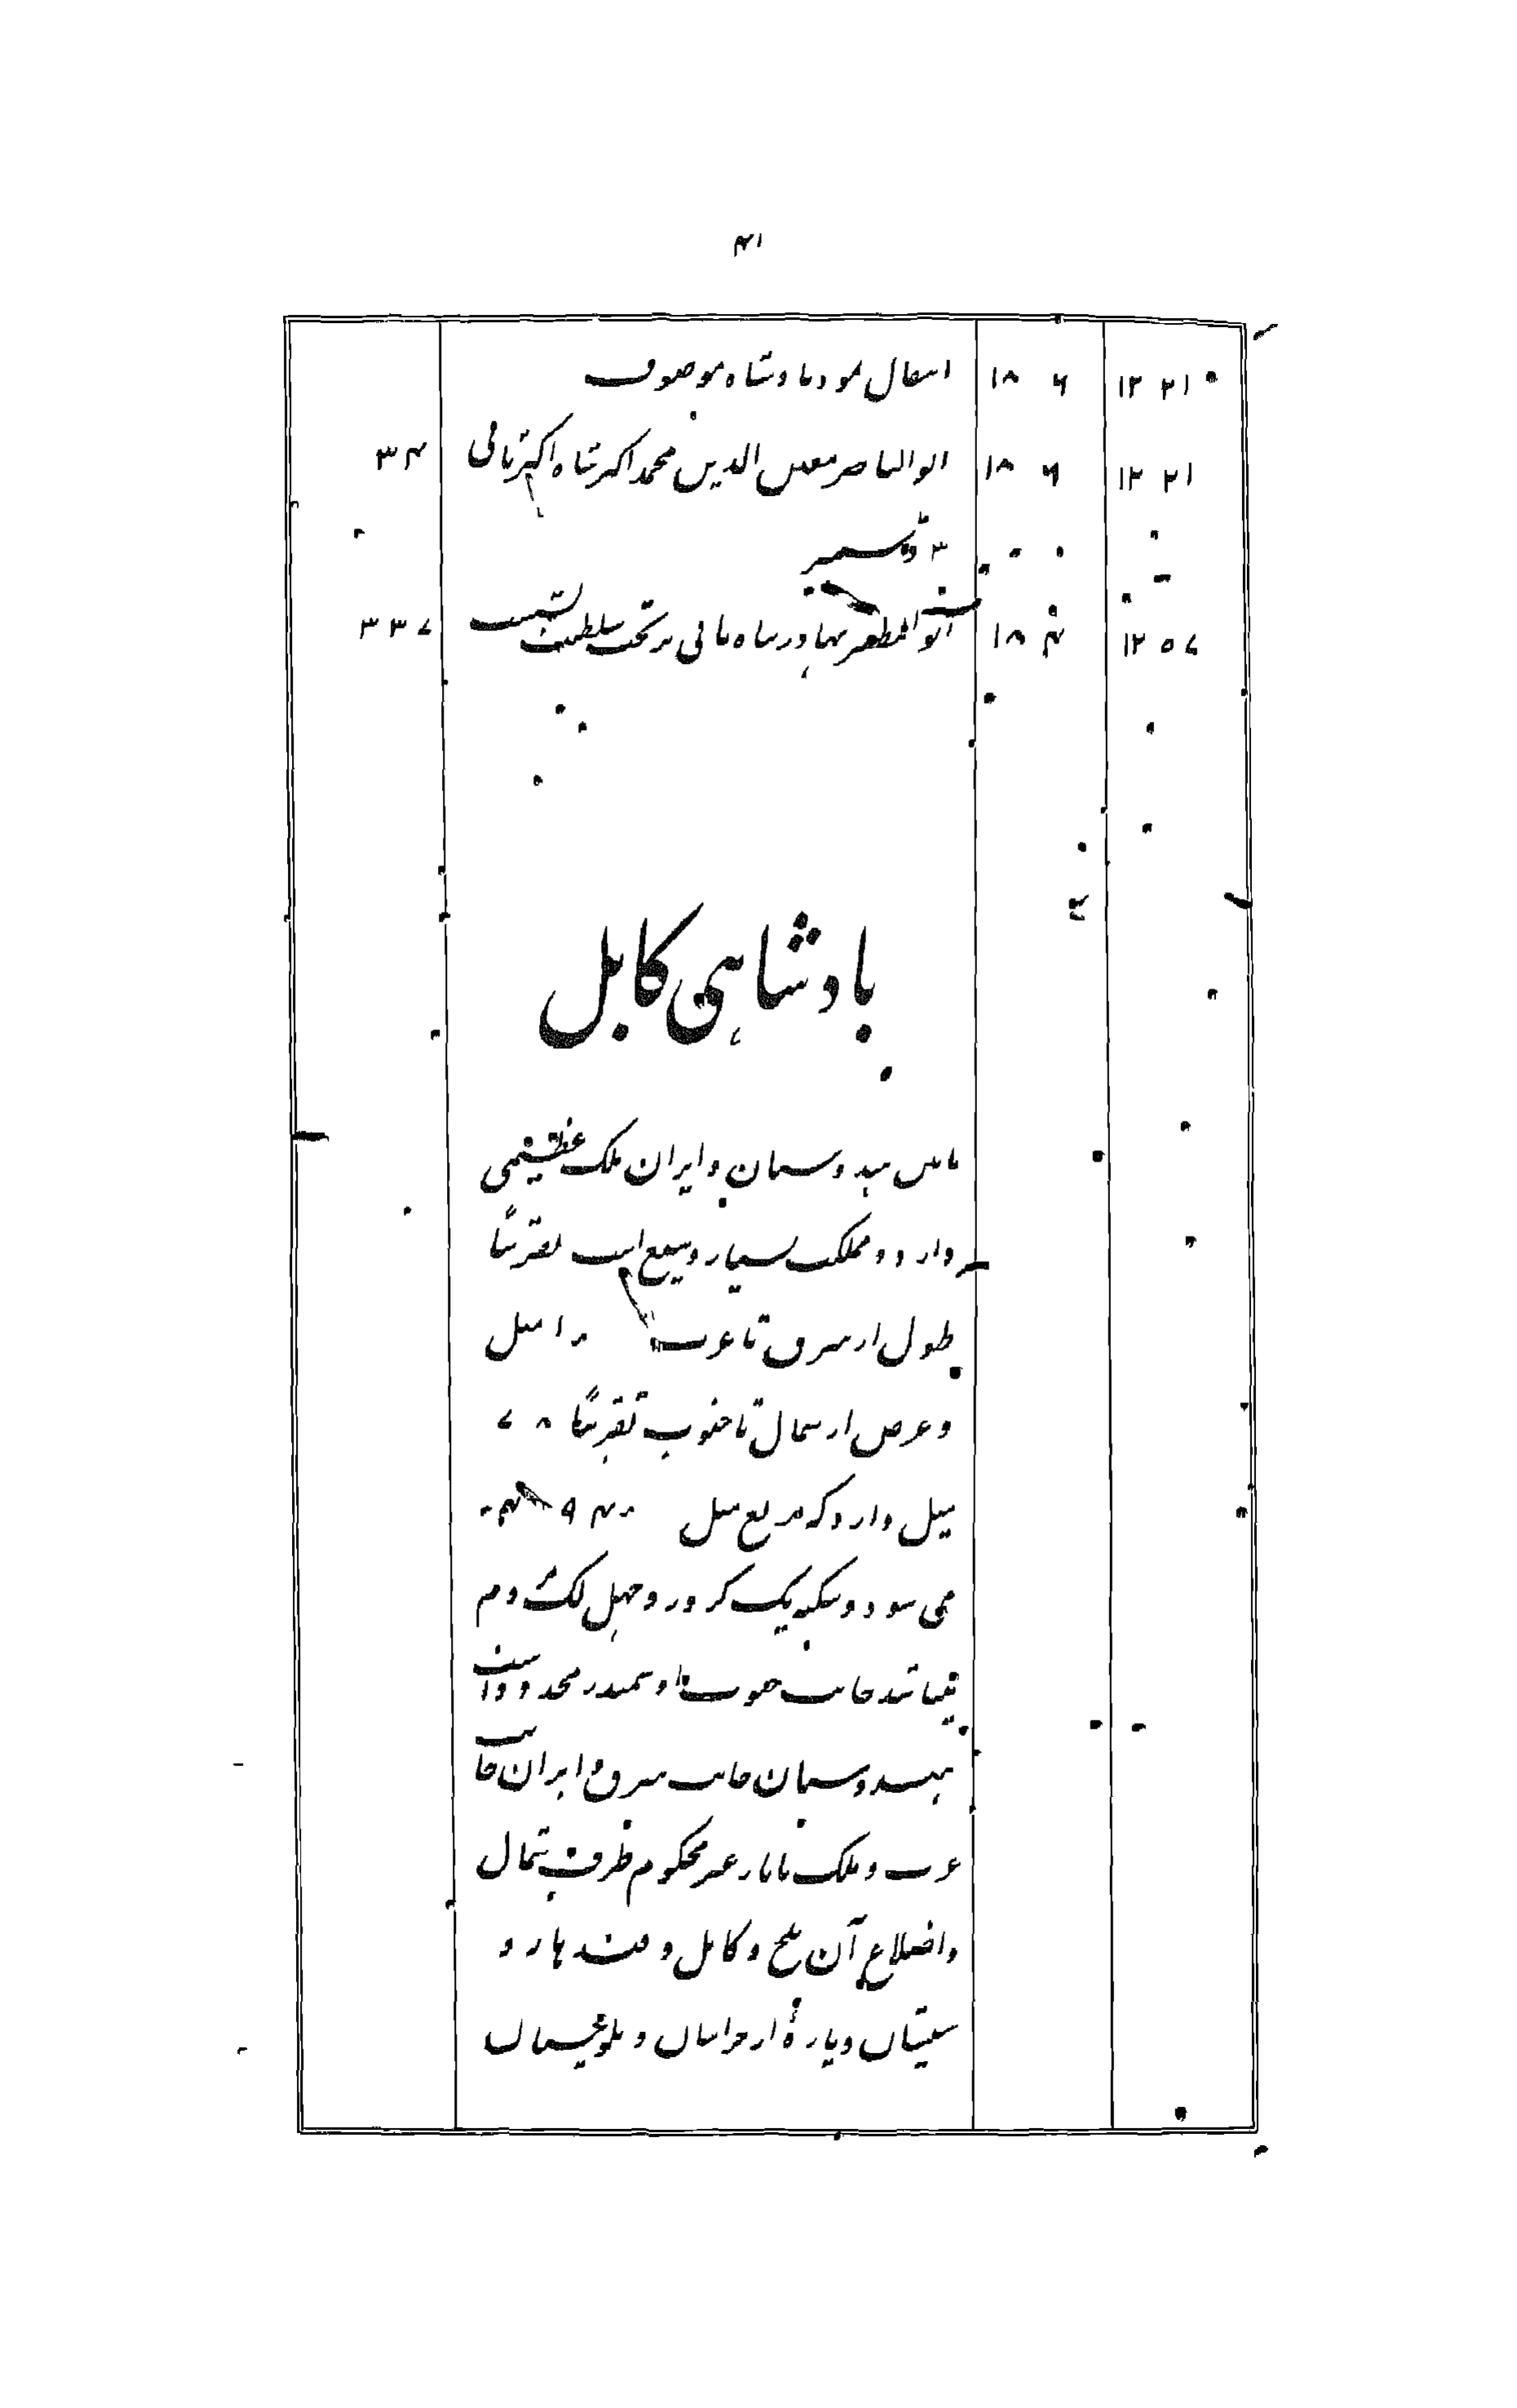 ۴۱
۱۲۲۱ ۱۸۰۶ انتقال نمود بادشاه موصوف
۱۲۲۱ ۱۸۰۶ ابو الناصر معین الدین محمد اکبر شاه اکبر ثانی ۳۴
۳ دسمبر
۱۲۵۷ ابو المظفر بهادر شاه ثانی بر تخت سلطنت نشست ۳۳۷
بادشاهی کابل
مابین هندوستان و ایران ملک عظیمی
دارد و مملکت بسیار وسیع است تقریباً
طول از مشرق تا غرب میل
و عرض از شمال تا جنوب تقریباً
میل دارد که مربع میل
می شود و سکنه یک کرور و چهل لک مردم
میباشد جانب جنوب او سمندر محدود است
هندوستان جانب شرق و ایران جانب
غرب و ملک تاتار غیر محکوم طرف شمال
و اضلاع آن بلخ و کابل و قندهار و
سیستان و پارهٔ از خراسان و بلوچستان